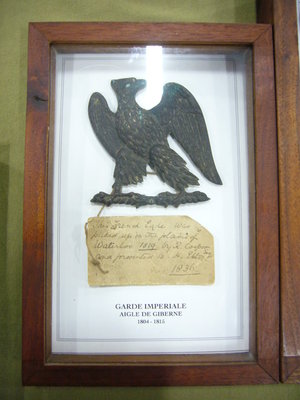 This French Eagle was
picked up on the plains of
Waterloo 1819 by R. Cooper
and presented to H.
1836
GARDE IMPERIALE
AIGLE DE GIBERNE
1804 - 1815